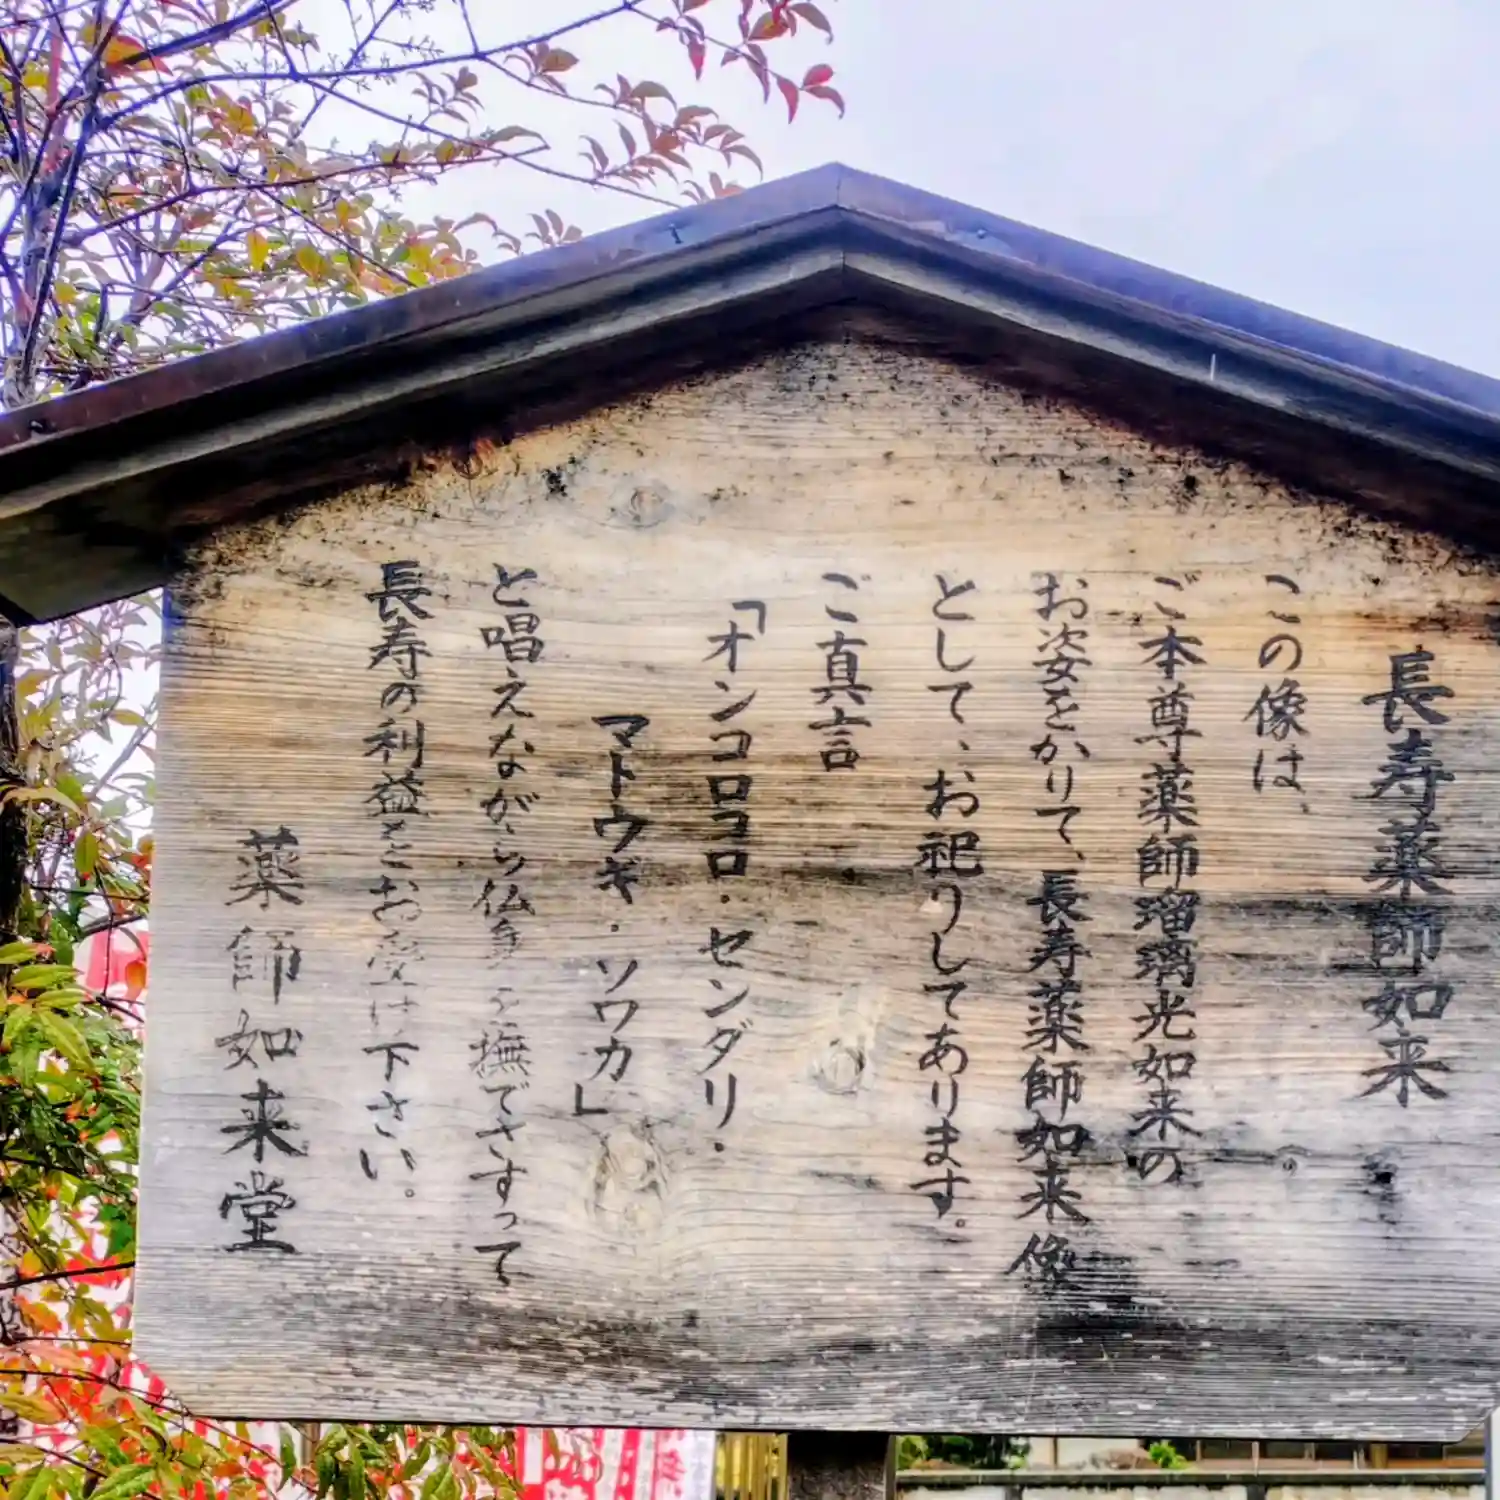 長寿薬師如来
この像は、
ご本尊薬師瑠璃光如来の
お姿をかりて、長寿薬師如来像
として、お祀りしてあります。
ご真言
「オンコロコロ・センダリ・
マトウギ・ソワカ」
と唱えながら仏身を撫でさすって
長寿の利益をお受け下さい。
薬師如来堂